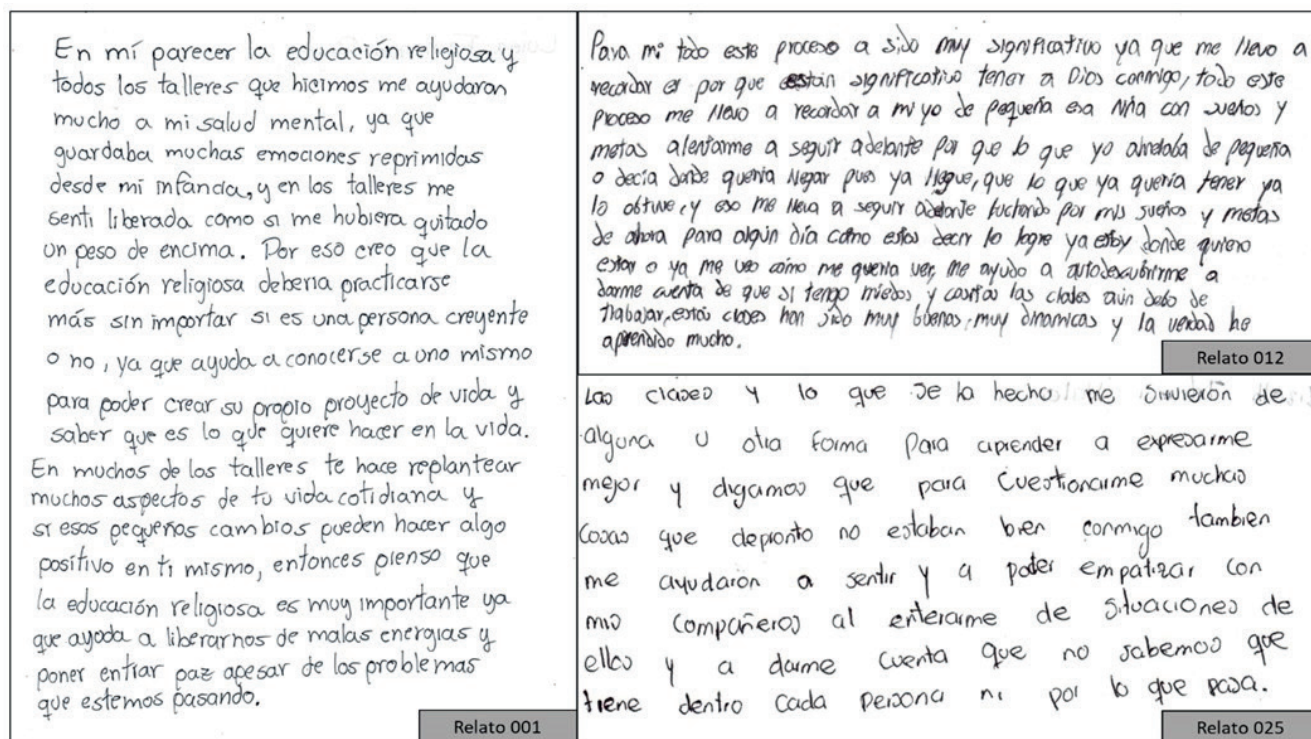 En mí parecer la educación religiosa y
todos los talleres que hicimos me ayudaron
mucho a mi salud mental, ya que
guardaba muchas emociones reprimidas
desde mi infancia, y en los talleres me
senti liberada como si me hubiera quitado
un peso de encima. Por eso creo que la
educación religiosa deberia practicarse
más sin importar si es una persona creyente
o no, ya que ayuda a conocerse a uno mismo
para poder crear su propio proyecto de vida y
saber que es lo que quiere hacer en la vida.
En muchos de los talleres te hace replantear
muchos aspectos de tu vida cotidiana y
si esos pequeños cambios pueden hacer algo
positivo en ti mismo, entonces pienso que
la educación religiosa es muy importante ya
que ayuda a liberarnos de malas energias y
poner entrar paz apesar de los problemas
que estemos pasando.
Relato 001
Para mi todo este proceso a sido muy significativo ya que me llevo a
recordar el por que es tan significativo tener a Dios conmigo, todo este
proceso me llevo a recordar a mi yo de pequeña esa niña con sueños y
metas alentarme a seguir adelante por que lo que yo anhelaba de pequeña
o decia donde queria llegar pues ya llegue, que lo que ya queria tener ya
lo obtuve, y eso me lleva a seguir adelante luchando por mis sueños y metas
de ahora para algún día cómo estos decir lo logre ya estoy donde quiero
estar o ya me veo cómo me queria ver, me ayudo a autodescubrirme a
darme cuenta de que si tengo miedos y las cuales aún debo de
trabajar, estas clases han sido muy buenas, muy dinamicas y la verdad he
aprendido mucho.
Relato 012
Las clases y lo que se ha hecho me sirvierón de
alguna u otra forma para aprender a expresarme
mejor y digamos que para cuestionarme muchas
cosas que depronto no estaban bien conmigo tambien
me ayudarón a sentir y a poder empatizar con
mis compañeros al enterarme de situaciones de
ellos y a darme cuenta que no sabemos que
tiene dentro cada persona ni por lo que pasa.
Relato 025